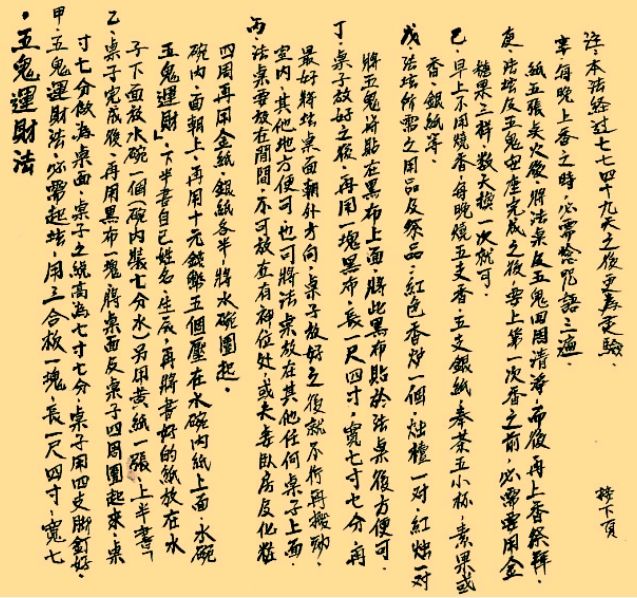 ・五鬼運財法
甲・五鬼運財法・必需起坛・用三合板一塊・長一尺四寸・寬七
寸七分做為桌面・桌子之總高為七寸七分・桌子用四支腳釘好・
乙・桌子完成後・再用黑布一塊將桌面反桌子四周圍起來・桌
子下面放水碗一個(碗內裝七分水)另用黃紙一張・上半書「
五鬼運財」・下半書自己姓名・生辰・再將書好的紙放在水
碗內・面朝上・再用十元錢幣五個壓在水碗內紙上面・水碗
四周再用金紙・銀紙各半將水碗圍起・
丙・法桌需放在閒間・不可放在有神位处・或夫妻臥房反化粧
室內・其他地方便可也可將法桌放在其他任何桌子上面・
最好將坛桌面朝外方向・桌子放好之後就不行再搬動・
丁・桌子放好之後・再用一塊黑布・長一尺四寸・寬七寸七分・再
將五鬼將貼在黑布上面・將此黑布貼於法桌後方便可・
戊・法坛所需之用品及祭品・紅色香炉一個・烛檯一对・紅烛一对
香・銀紙等・
己・早上不用燒香・每晚燒五支香・五支銀紙・奉茶五小杯・素果或
糖果三样・数天換一次就可・
庚・法坛反五鬼安座完成之後・要上第一次香之前・必需要用金
紙五張後・將法桌反五鬼四周清淨・而後再上香祭拜・
辛・每晚上香之時・必需唸咒語三遍・
註・本法经过七七四十九天之後更為灵驗・
接下頁